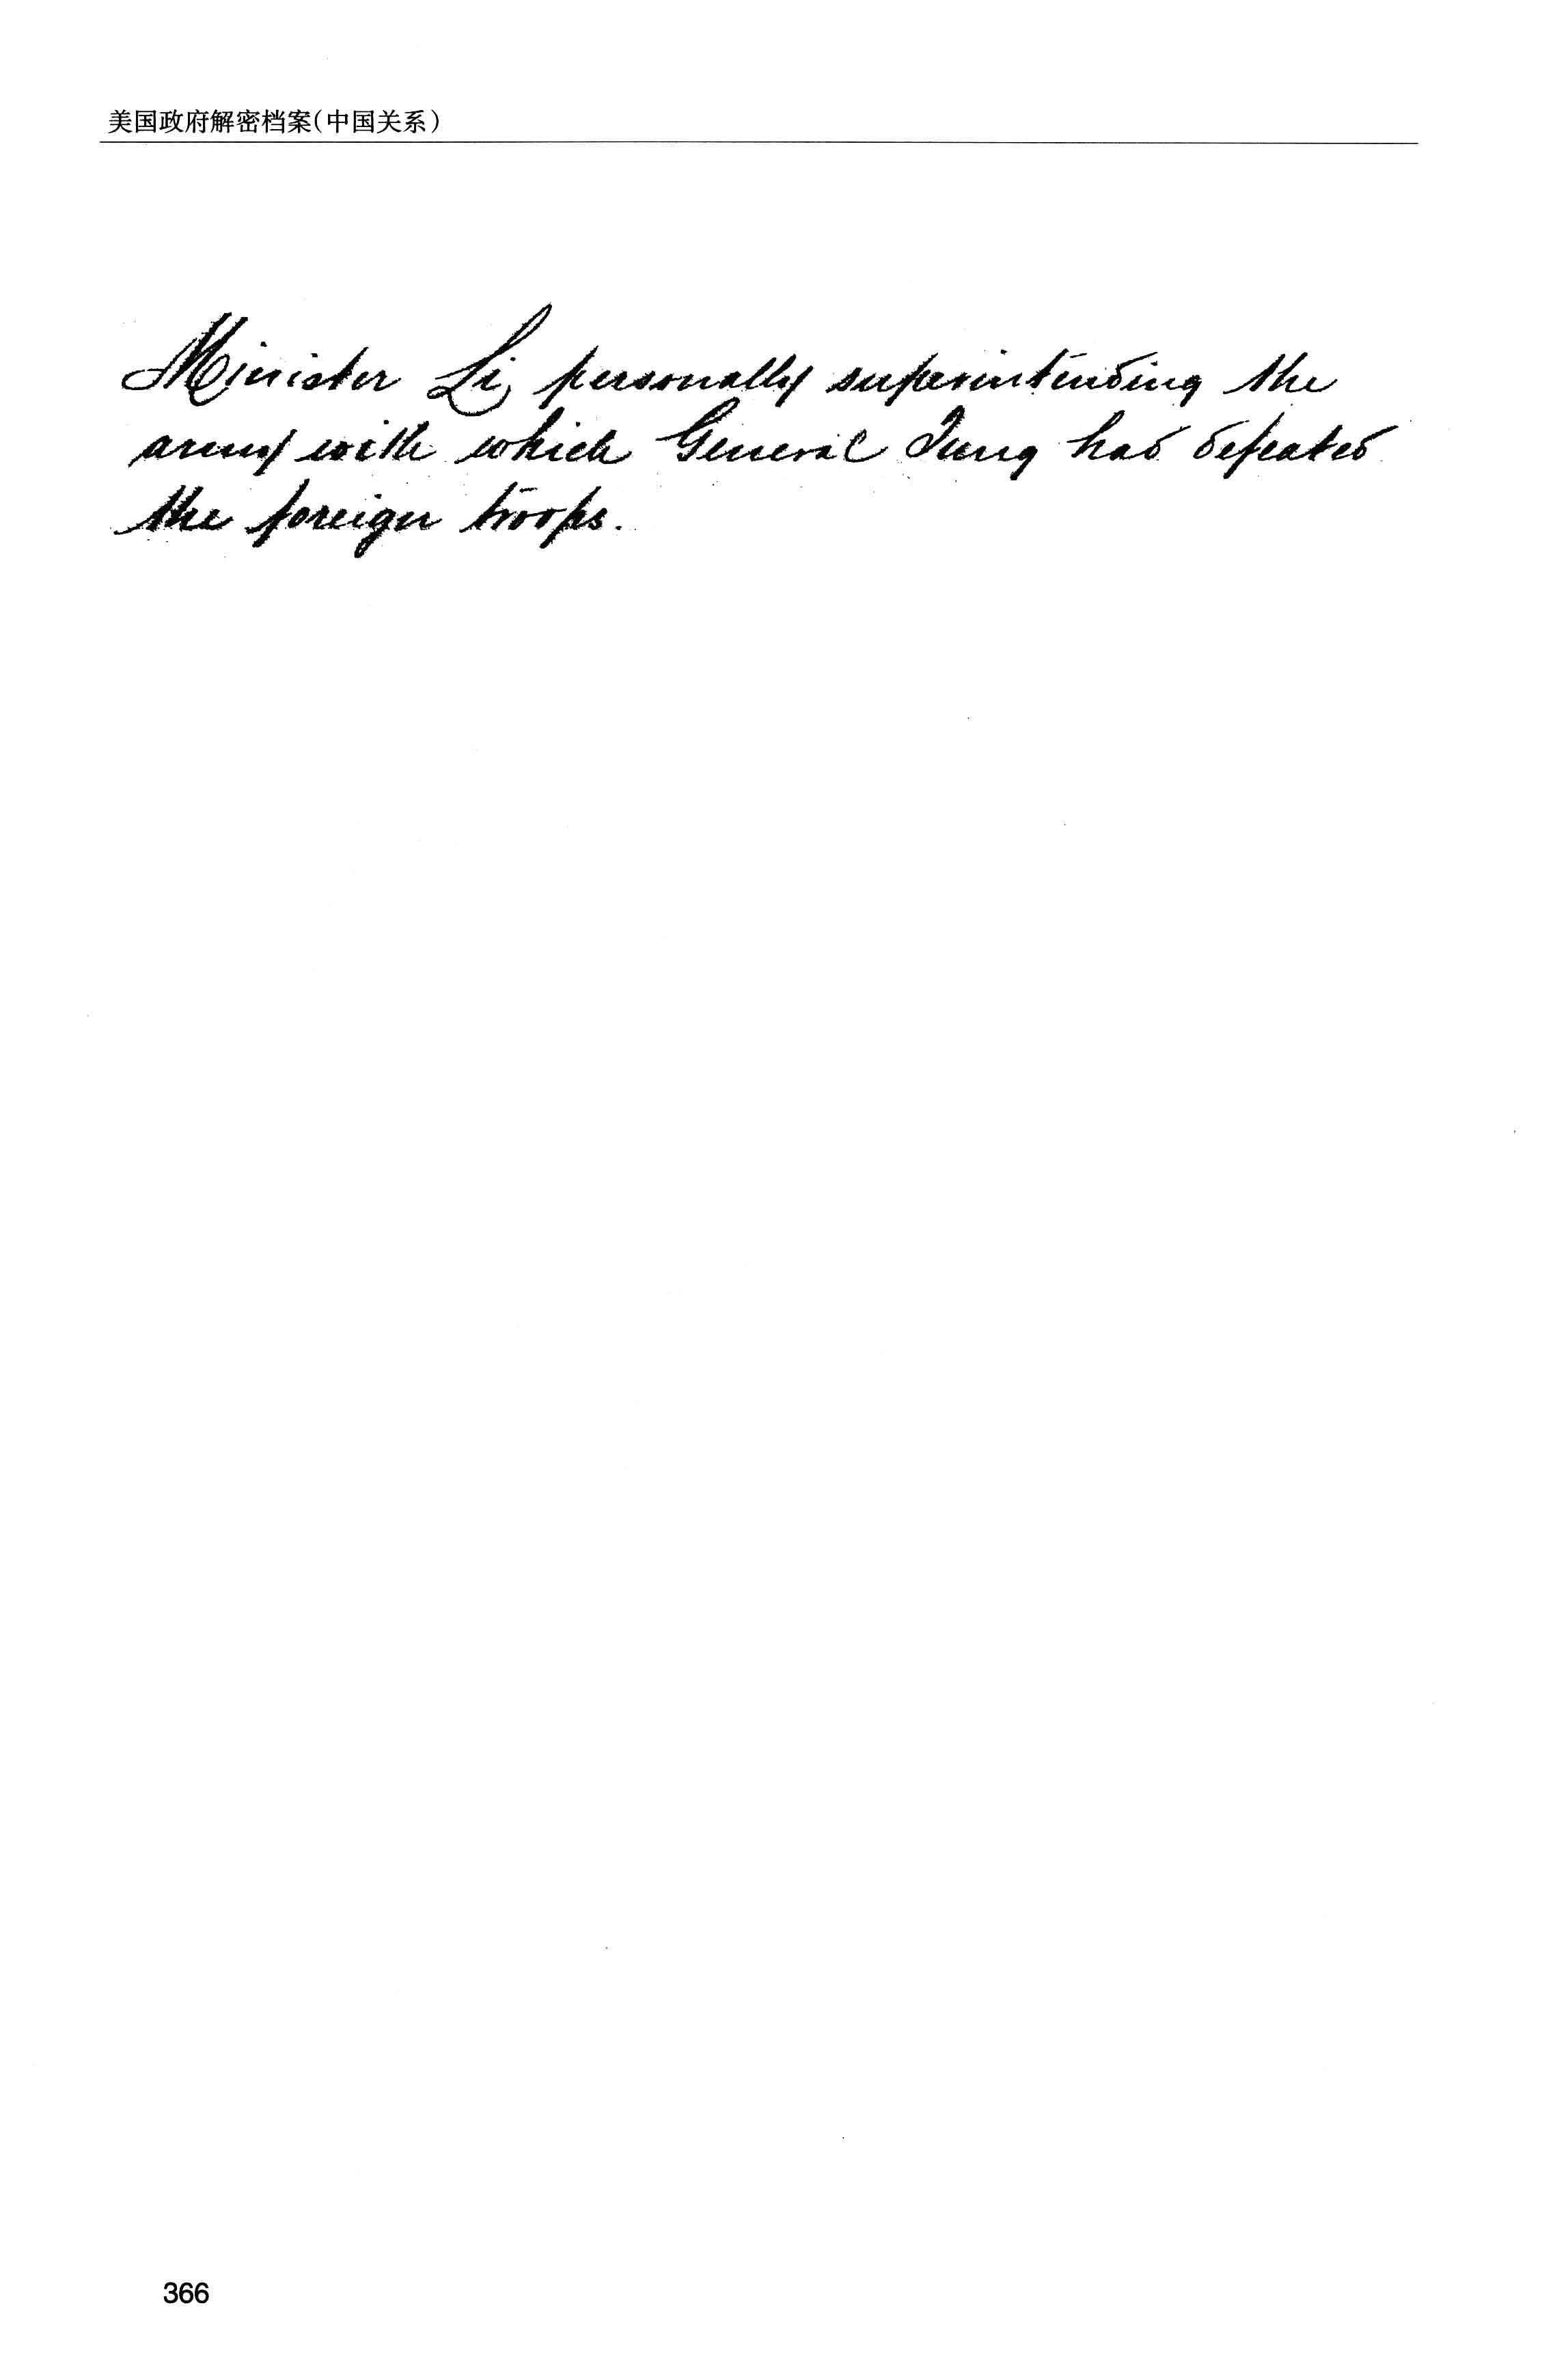 美国政府解密档案(中国关系)
Minister Li, personally superintending the
army with which General Tung has defeated
the foreign troops.
366